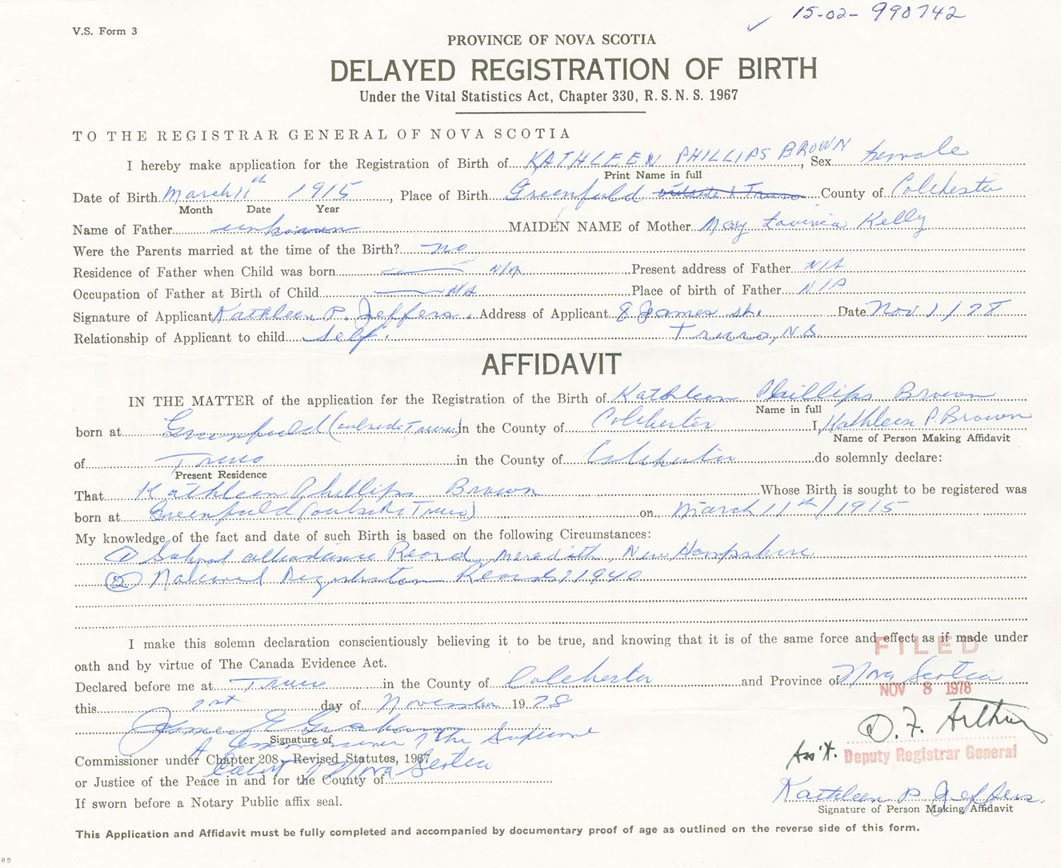 15-02- 990742
V.S. Form 3
PROVINCE OF NOVA SCOTIA
DELAYED REGISTRATION OF BIRTH
Under the Vital Statistics Act, Chapter 330, R. S. N. S. 1967
TO THE REGISTRAR GENERAL OF NOVA SCOTIA
I hereby make application for the Registration of Birth of KATHLEEN PHILLIPS BROWN, Sex female
Print Name in full
Date of Birth March 11th 1915, Place of Birth Greenfield outside Truro County of Colchester
Month Date Year
Name of Father unknown MAIDEN NAME of Mother May Lavinia Kelly
Were the Parents married at the time of the Birth? no
Residence of Father when Child was born N/A Present address of Father N/A
Occupation of Father at Birth of Child N/A Place of birth of Father N/A
Signature of Applicant Kathleen P. Jeffers. Address of Applicant 8 James St. Date Nov 1/78
Relationship of Applicant to child self. Truro, N.S.
AFFIDAVIT
IN THE MATTER of the application for the Registration of the Birth of Kathleen Phillips Brown
Name in full
born at Greenfield (outside Truro) in the County of Colchester I, Kathleen P. Brown
Name of Person Making Affidavit
of Truro in the County of Colchester do solemnly declare:
Present Residence
That Kathleen Phillips Brown Whose Birth is sought to be registered was
born at Greenfield (outside Truro) on March 11th/1915
My knowledge of the fact and date of such Birth is based on the following Circumstances:
① School attendance Record, Meredith, New Hampshire
② National Registration Records 1940
I make this solemn declaration conscientiously believing it to be true, and knowing that it is of the same force and effect as if made under
oath and by virtue of The Canada Evidence Act.
FILED
Declared before me at Truro in the County of Colchester and Province of Nova Scotia
NOV 8 1978
this 1st day of November 1978
James G
D. F. Arthur
Signature of
A Commissioner of the Supreme
Commissioner under Chapter 208, Revised Statutes, 1967
Court of Nova Scotia
Ass't. Deputy Registrar General
or Justice of the Peace in and for the County of
Kathleen P. Jeffers.
Signature of Person Making Affidavit
If sworn before a Notary Public affix seal.
This Application and Affidavit must be fully completed and accompanied by documentary proof of age as outlined on the reverse side of this form.